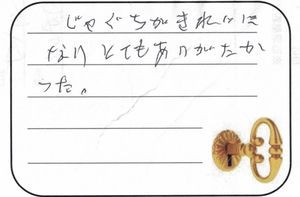 じゃぐちがきれいに
なり とてもありがたか
った。